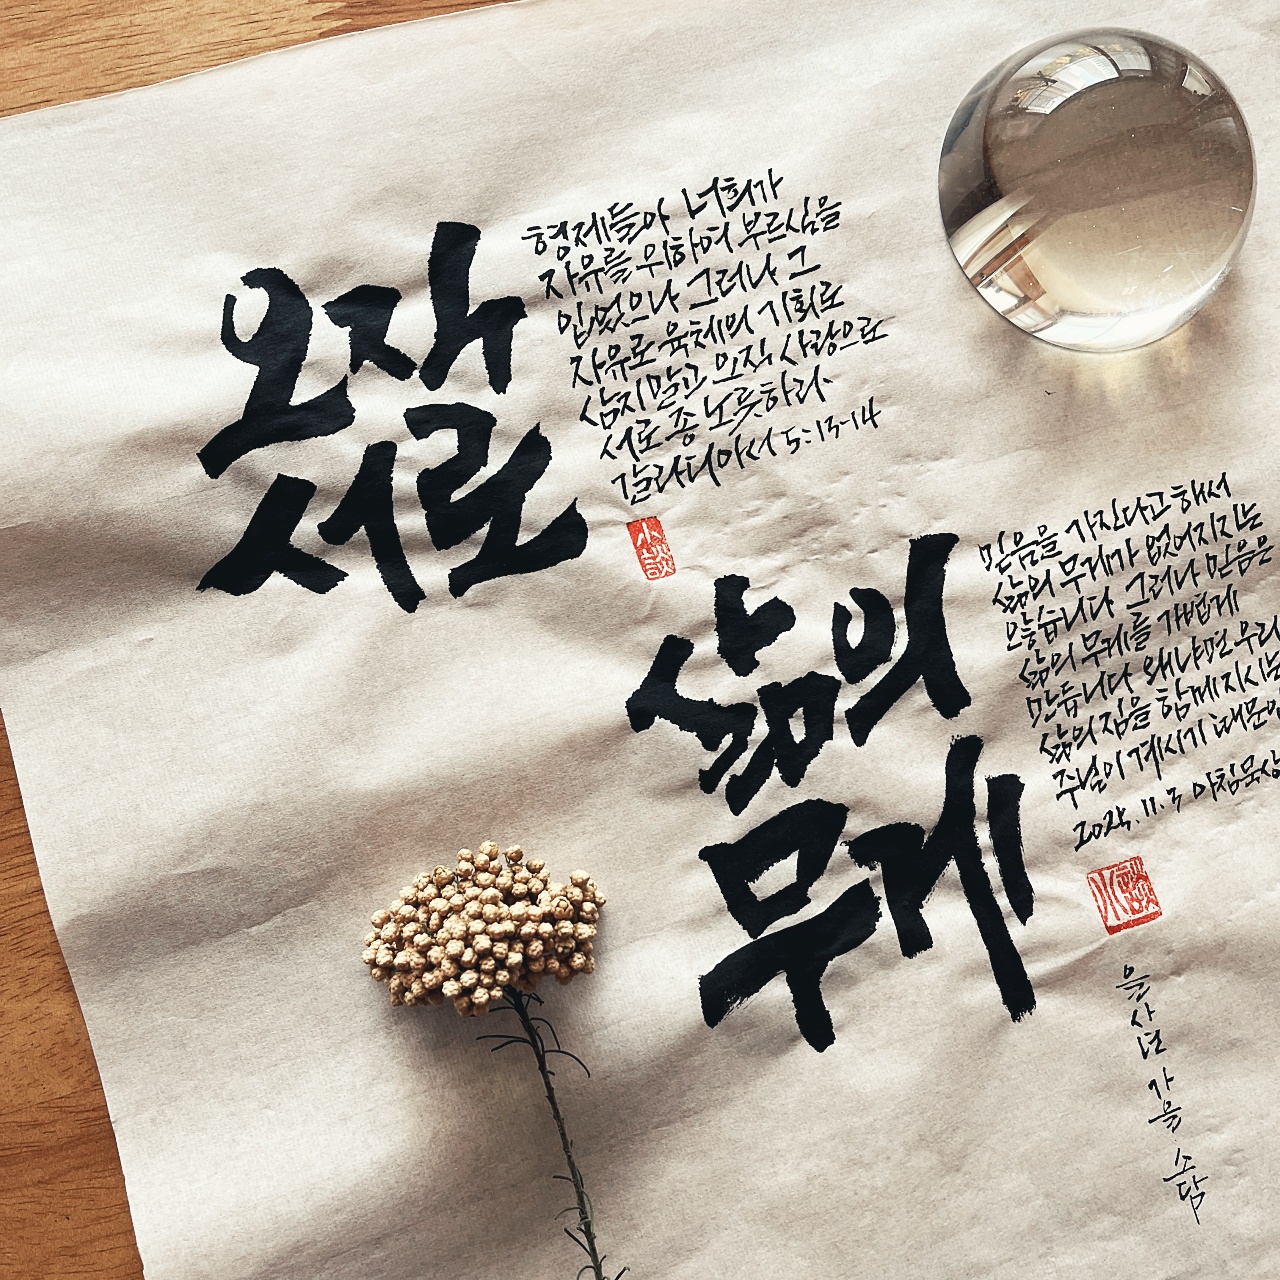 오직
서로
형제들아 너희가
자유를 위하여 부르심을
입었으나 그러나 그
자유로 육체의 기회로
삼지말고 오직 사랑으로
서로 종 노릇하라
갈라디아서 5:13-14
小談
삶의
무게
믿음을 가진다고 해서
삶의 무게가 없어지지는
않습니다 그러나 믿음은
삶의 무게를 가볍게
만듭니다 왜냐면 우리
삶의 짐을 함께 지시는
주님이 계시기 때문입
2025.11.3 아침묵상
小談
을사년 가을 소담